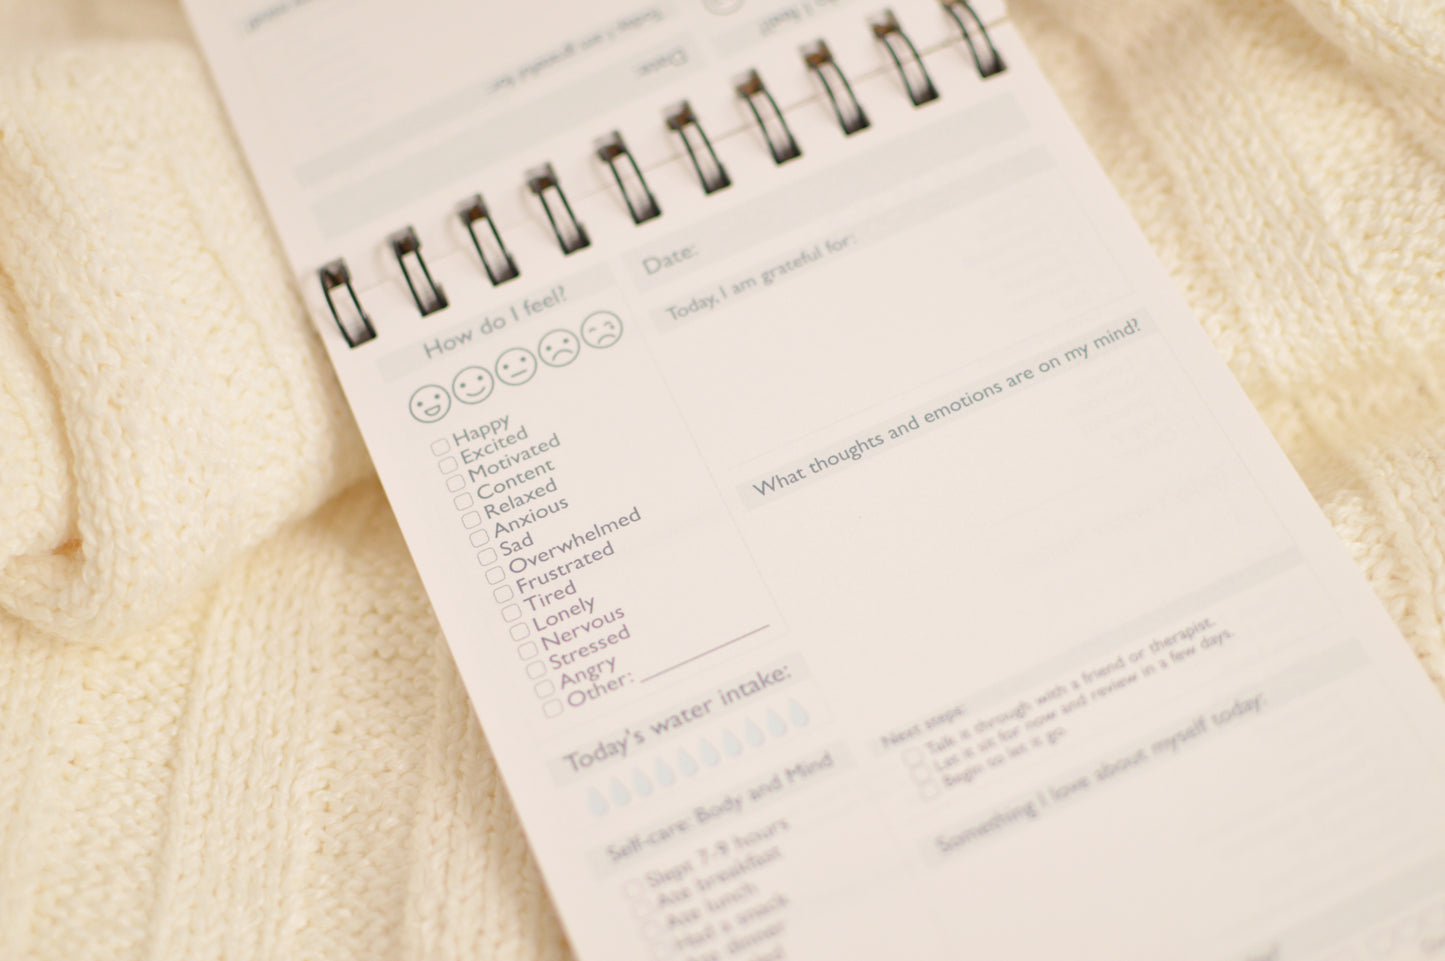 Date:
How do I feel?
Happy
Excited
Motivated
Content
Relaxed
Anxious
Sad
Overwhelmed
Frustrated
Tired
Lonely
Nervous
Stressed
Angry
Other:
Today's water intake:
Self-care: Body and Mind
Slept 7-9 hours
Ate breakfast
Ate lunch
Had a snack
Ate dinner
Date:
Today, I am grateful for:
What thoughts and emotions are on my mind?
Next steps:
Talk it through with a friend or therapist.
Let it sit for now and review in a few days.
Begin to let it go.
Something I love about myself today: